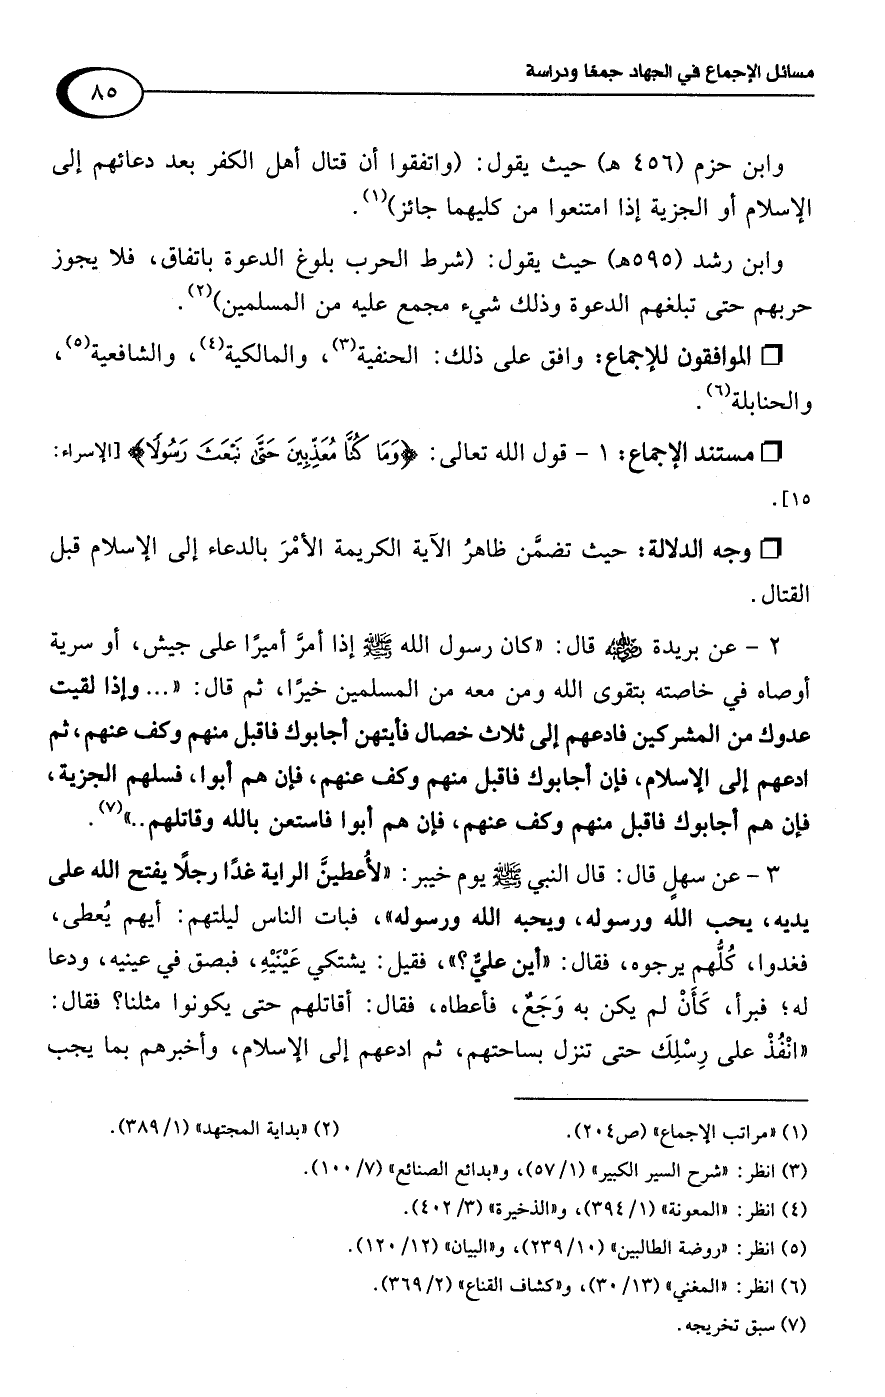 مسائل الإجماع في الجهاد جمعًا ودراسة
٨٥
وابن حزم (٤٥٦ هـ) حيث يقول: (واتفقوا أن قتال أهل الكفر بعد دعائهم إلى
الإسلام أو الجزية إذا امتنعوا من كليهما جائز)(١).
وابن رشد (٥٩٥هـ) حيث يقول: (شرط الحرب بلوغ الدعوة باتفاق، فلا يجوز
حربهم حتى تبلغهم الدعوة وذلك شيء مجمع عليه من المسلمين)(٢).
❒ الموافقون للإجماع: وافق على ذلك: الحنفية(٣)، والمالكية(٤)، والشافعية(٥)،
والحنابلة(٦).
❒ مستند الإجماع: ١ - قول الله تعالى: ﴿وَمَا كُنَّا مُعَذِّبِينَ حَتَّىٰ نَبْعَثَ رَسُولًا﴾ [الإسراء:
١٥].
❒ وجه الدلالة: حيث تضمَّن ظاهرُ الآية الكريمة الأمْرَ بالدعاء إلى الإسلام قبل
القتال.
٢ - عن بريدة رضي الله عنه قال: «كان رسول الله ﷺ إذا أمرَّ أميرًا على جيش، أو سرية
أوصاه في خاصته بتقوى الله ومن معه من المسلمين خيرًا، ثم قال: «... وإذا لقيت
عدوك من المشركين فادعهم إلى ثلاث خصال فأيتهن أجابوك فاقبل منهم وكف عنهم، ثم
ادعهم إلى الإسلام، فإن أجابوك فاقبل منهم وكف عنهم، فإن هم أبوا، فسلهم الجزية،
فإن هم أجابوك فاقبل منهم وكف عنهم، فإن هم أبوا فاستعن بالله وقاتلهم..»(٧).
٣ - عن سهلٍ قال: قال النبي ﷺ يوم خيبر: «لأُعطينَّ الراية غدًا رجلًا يفتح الله على
يديه، يحب الله ورسوله، ويحبه الله ورسوله»، فبات الناس ليلتهم: أيهم يُعطى،
فغدوا، كُلُّهم يرجوه، فقال: «أين عليٌّ؟»، فقيل: يشتكي عَيْنَيْهِ، فبصق في عينيه، ودعا
له؛ فبرأ، كَأَنْ لم يكن به وَجَعٌ، فأعطاه، فقال: أقاتلهم حتى يكونوا مثلنا؟ فقال:
«انْفُذْ على رِسْلِكَ حتى تنزل بساحتهم، ثم ادعهم إلى الإسلام، وأخبرهم بما يجب
(١) «مراتب الإجماع» (ص٢٠٤).
(٢) «بداية المجتهد» (١/ ٣٨٩).
(٣) انظر: «شرح السير الكبير» (١/ ٥٧)، و«بدائع الصنائع» (٧/ ١٠٠).
(٤) انظر: «المعونة» (١/ ٣٩٤)، و«الذخيرة» (٣/ ٤٠٢).
(٥) انظر: «روضة الطالبين» (١٠/ ٢٣٩)، و«البيان» (١٢/ ١٢٠).
(٦) انظر: «المغني» (١٣/ ٣٠)، و«كشاف القناع» (٢/ ٣٦٩).
(٧) سبق تخريجه.